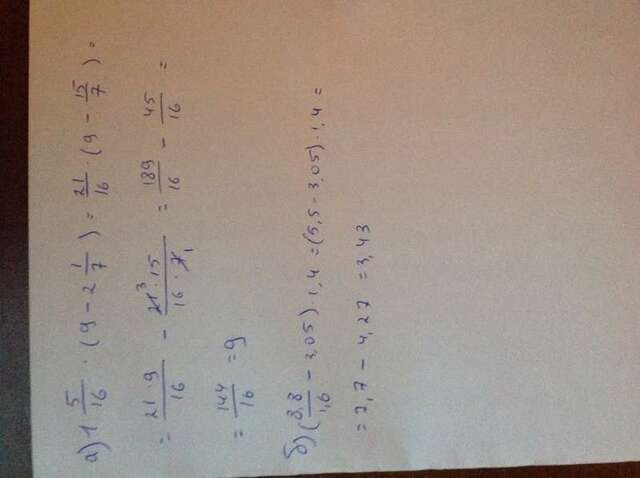 а) 1 5/16 · (9 - 2 1/7) = 21/16 · (9 - 15/7) =
= 21·9/16 - 21³·15/16·7₁ = 189/16 - 45/16 =
= 144/16 = 9
б) (8,8/1,6 - 3,05)·1,4 = (5,5-3,05)·1,4 =
= 7,7 - 4,27 = 3,43